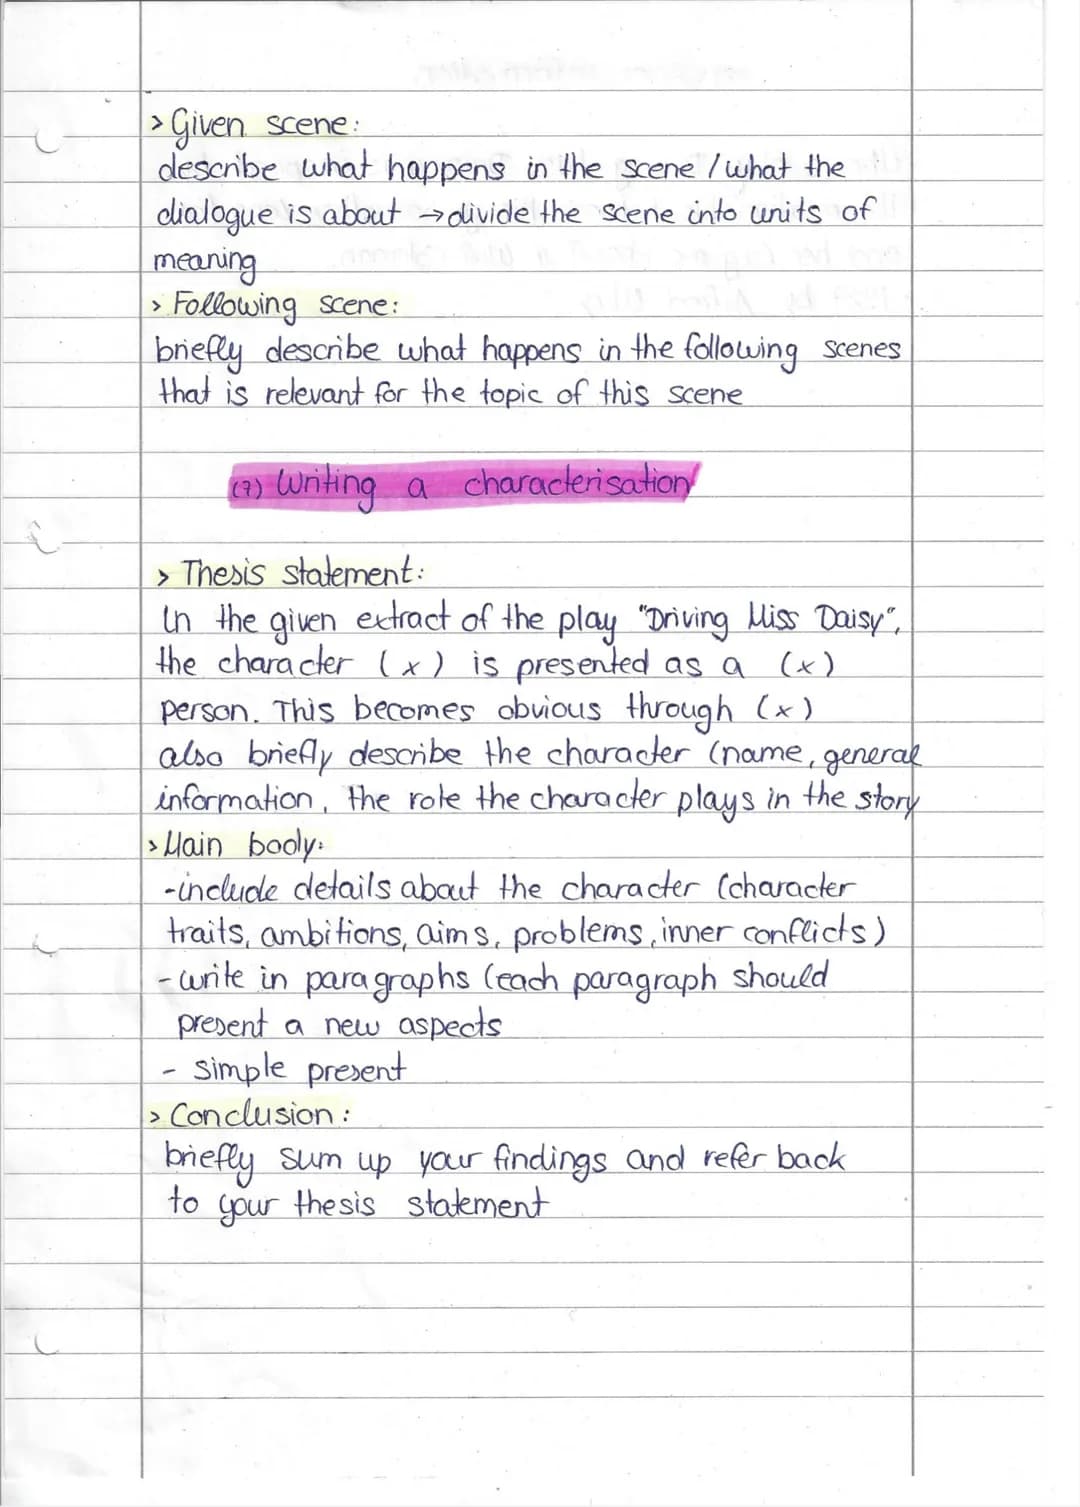 > Given scene:
describe what happens in the scene / what the
dialogue is about → divide the scene into units of
meaning
> Following scene:
briefly describe what happens in the following scenes
that is relevant for the topic of this scene
(7) Writing a characterisation
> Thesis statement:
In the given extract of the play "Driving Miss Daisy",
the character (x) is presented as a (x)
person. This becomes obvious through (x)
also briefly describe the character (name, general
information, the role the character plays in the story
> Main body:
-include details about the character (character
traits, ambitions, aims, problems, inner conflicts)
- write in paragraphs (each paragraph should
present a new aspects
- simple present
> Conclusion:
briefly sum up your findings and refer back
to your thesis statement